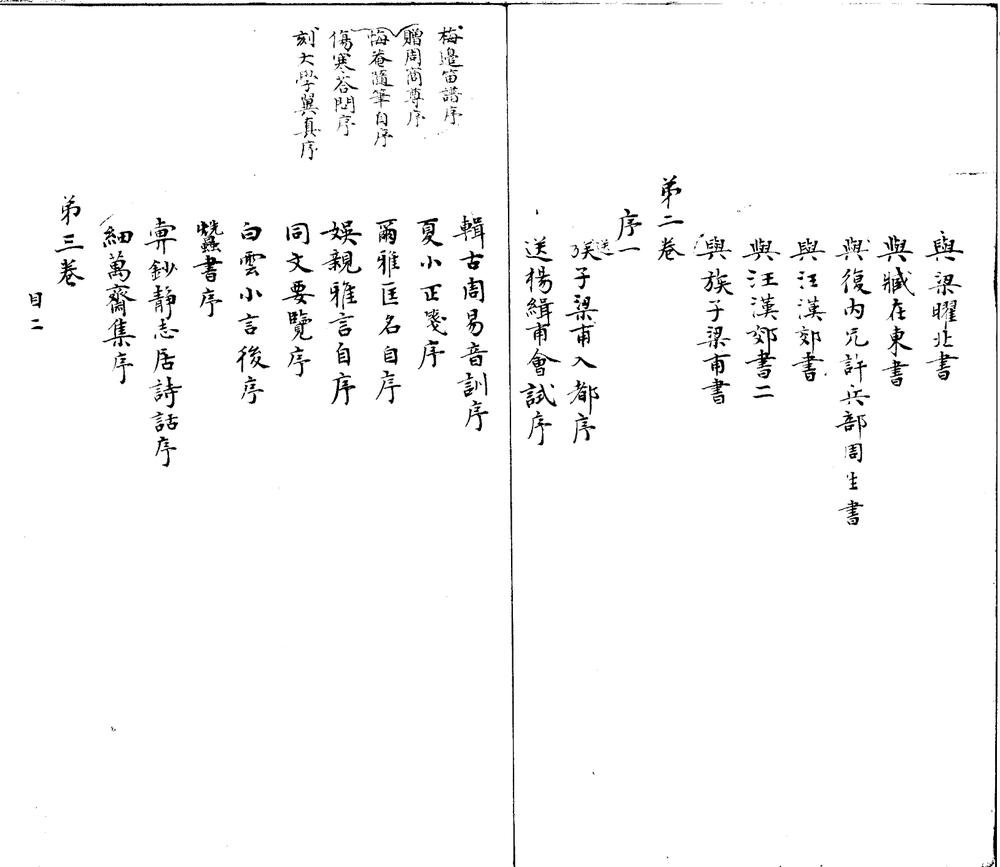 與梁曜北書
與臧在東書
與復內兄許兵部周生書
與汪漢郊書
與汪漢郊書二
與族子梁甫書
第二卷
序一
送族子梁甫入都序
送楊緝甫會試序
梅邊笛譜序
贈周尊序
悔菴隨筆自序
傷寒答問序
刻大學翼真序
輯古周易音訓序
夏小正箋序
爾雅匡名自序
娛親雅言自序
同文要覽序
白雲小言後序
蠶書序
鈔靜志居詩話序
細萬齋集序
第三卷
目二